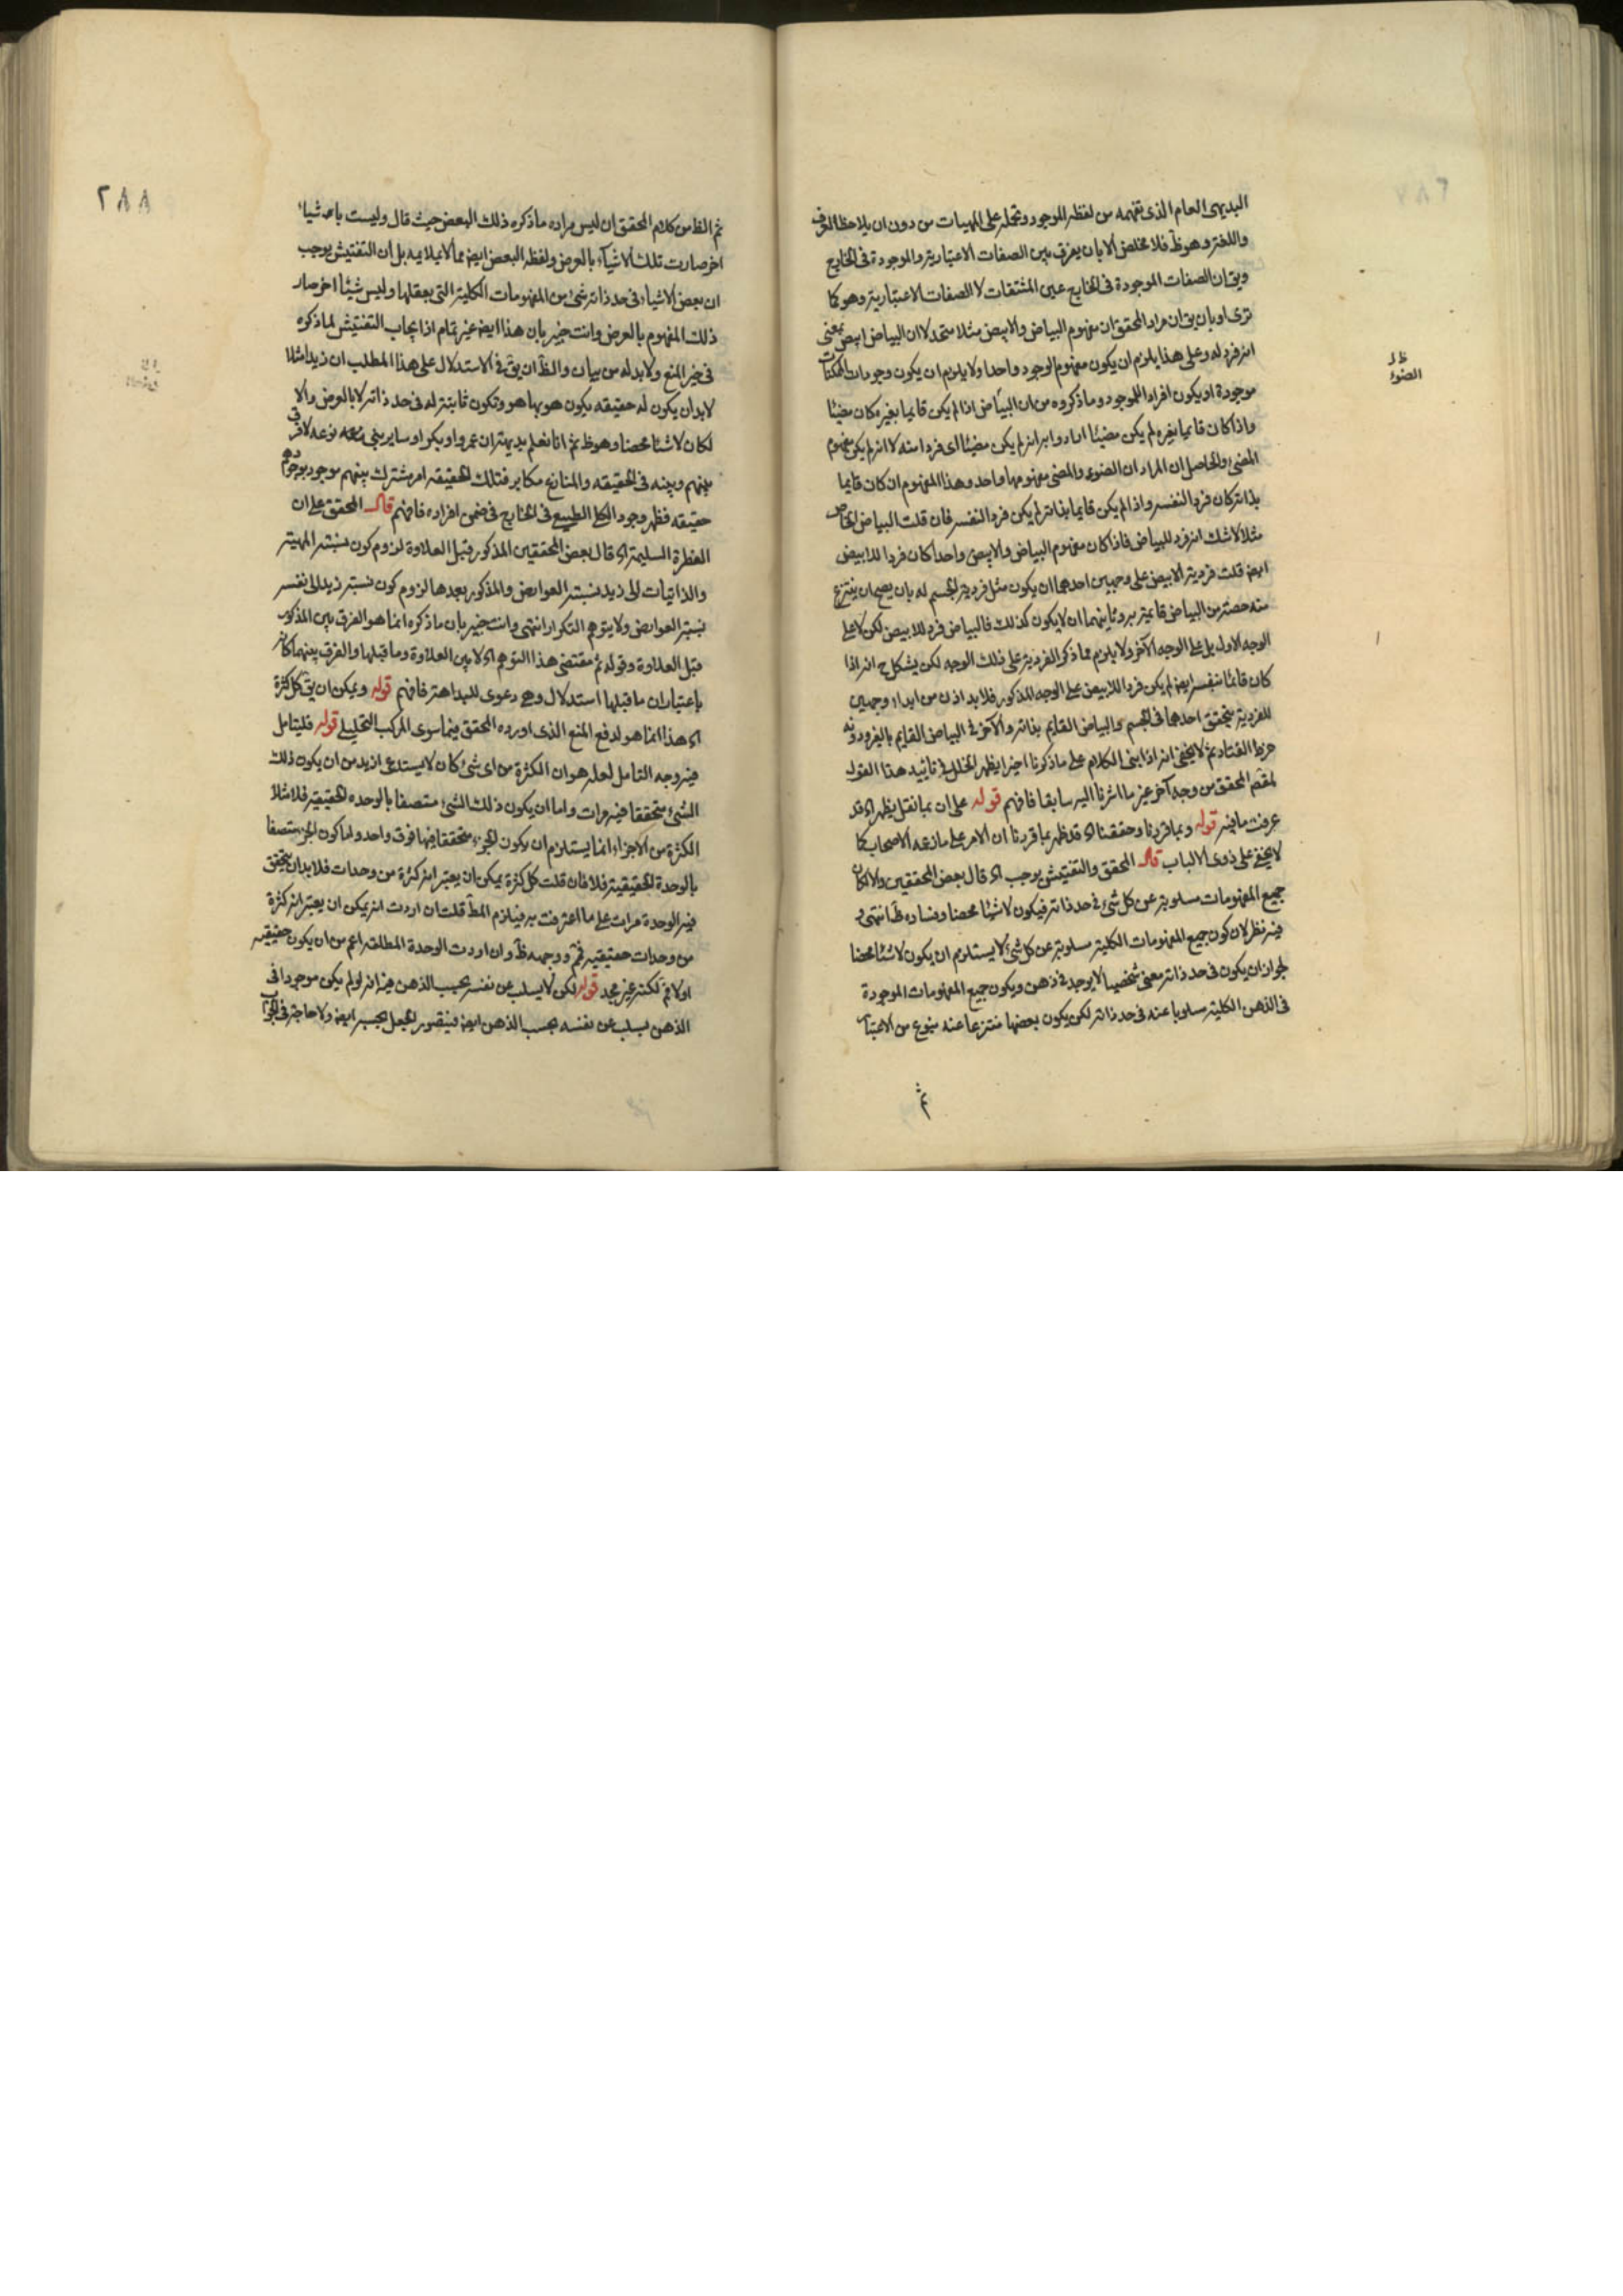 البديهى العام الذى تفهمه من لفظه الموجود وتحمله على المهيات من دون ان يلاحظ العرف
واللغة وهو ظ فلا مخلص الا بان يفرق بين الصفات الاعتبارية والموجودة فى الخارج
ويق ان الصفات الموجودة فى الخارج عين المشتقات لا الصفات الاعتبارية وهو كما
ترى او بان يق ان مراد المحقق ان مفهوم البياض والابيض مثلا متحد لا ان البياض ابيض بمعنى
انه فرد له وعلى هذا يلزم ان يكون مفهوم الوجود واحدا ولا يلزم ان يكون وجودات الممكنات
موجودة او يكون افراد اللموجود وما ذكروه من ان البياض اذا لم يكن قايما بغيره كان مضيئا
واذا كان قايما بغيره لم يكن مضيئا ارادوا به انه لم يكن مضيئا اى فردا منه لا انه لم يكن مفهوم
المضئ والحاصل ان المراد ان الضوء والمضئ مفهومهما واحد وهذا المفهوم ان كان قايما
بذاته كان فردا لنفسه واذا لم يكن قايما بذاته لم يكن فردا لنفسه فان قلت البياض الخاص
مثلا لا شك انه فرد للبياض فاذا كان مفهوم البياض والابيض واحدا كان فردا للابيض
ايض قلت فردية الابيض على وجهين احدهما ان يكون مثل فردية الجسم له بان يصح ان ينتزع
منه حصة من البياض قايمة به وثاينهما ان لا يكون كذلك فالبياض فرد للابيض لكن لا على
الوجه الاول بل على الوجه الآخر ولا يلزم مما ذكر الفردية على ذلك الوجه لكن يشكل ح انه اذا
كان قائما بنفسه ايض لم يكن فردا للابيض على الوجه المذكور فلا بد اذن من ابداء وجهين
للفردية يتحقق احدهما فى الجسم والبياض القايم بذاته والآخر فى البياض القايم بالغير ودونه
خرط القتاد ثم لا يخفى انه اذا بنى الكلام على ما ذكرنا اخيرا يظهر الخلل فى تاييد هذا القول
لمقصد المحقق من وجه آخر غير ما اشرنا اليه سابقا فافهم قوله على ان بما نقل يظهر اه قد
عرفت ما فيه قوله وبما قررنا وحققنا اه قد ظهر بما قررنا ان الامر على ما زعمه الاصحاب كما
لا يخفى على ذوى الالباب قال المحقق والتفتيش يوجب اه قال بعض المحققين والا لكان
جميع المفهومات مسلوبة عن كل شئ فى حد ذاته فيكون لا شيئا محضا وفساده ظ انتهى و
فيه نظر لان كون جميع المفهومات الكلية مسلوبة عن كل شئ لا يستلزم ان يكون لا شيئا محضا
لجواز ان يكون فى حد ذاته معنى شخصيا لا يوجد فى ذهن ويكون جميع المفهومات الموجودة
فى الذهن الكلية مسلوبا عنه فى حد ذاته لكن يكون بعضها منتزعا عنه بنوع من الاعتبار
ثم
ظ
الضوء
٢٨٨
ثم الظ من كلام المحقق ان ليس مراده ما ذكره ذلك البعض حيث قال وليست باعد شياء
اخر صارت تلك الاشياء بالعرض ولفظه البعض ايض مما لا يلايمه بل ان التفتيش يوجب
ان بعض الاشياء فى حد ذاته شئ من المفهومات الكلية التى بعقلها وليس شيئا اخر صار
ذلك المفهوم بالعرض وانت خبير بان هذا ايض غير تمام اذ ايجاب التفتيش لما ذكره
فى حيز المنع ولا بد له من بيان والظ ان يق فى الاستدلال على هذا المطلب ان زيدا مثلا
لا بد ان يكون له حقيقه يكون هو بها هو وتكون ثابتة له فى حد ذاته لا بالعرض والا
لكان لا شيئا محضا وهو ظ ثم انا نعلم بديهة ان عمروا وبكرا وساير بنى نوعه لا فرق
بينهم وبينه فى الحقيقه والمنازع مكابر فتلك الحقيقه امر مشترك بينهم موجود بوجودهم
حقيقه فظهر وجود الكلى الطبيعى فى الخارج فى ضمن افراده فافهم قال المحقق على ان
الفطرة السليمة اه قال بعض المحققين المذكور قبل العلاوة لزوم كون نسبة المهية
والذاتيات الى زيد نسبة العوارض والمذكور بعدها لزوم كون نسبة زيد الى نفسه
نسبة العوارض ولا يتوهم التكرار انتهى وانت خبير بان ما ذكره انما هو الفرق بين المذكور
قبل العلاوة وقوله ثم مقتضى هذا التوهم اه لا بين العلاوة وما قبلها والفرق بينهما كانه
باعتبار ان ما قبلها استدلال وهى دعوى للبداهة فافهم قوله ويمكن ان يق كل كثرة
اه هذا انما هو لدفع المنع الذى اورده المحقق فيما سوى المركب التحليلى قوله فليتامل
فيه وجه التامل لعله هو ان الكثرة من اى شئ كان لا يستدعى ازيد من ان يكون ذلك
الشئ متحققا فيه مرات واما ان يكون ذلك الشئ متصفا بالوحده الحقيقية فلا مثلا
الكثرة من الاجزاء انما يستلزم ان يكون الجزء متحققا فيها فوق واحد واما كون الجزء متصفا
بالوحدة الحقيقية فلا فان قلت كل كثرة يمكن ان يعتبر انه كثرة من وحدات فلا بد ان يتحقق
فيه الوحدة مرات على ما اعترفت به فيلزم المط قلت ان اردت انه يمكن ان يعتبر انه كثرة
من وحدات حقيقيه فمم ووجهه ظ وان اردت الوحدة المطلقه اعم من ان يكون حقيقيه
اولا فم لكنه غير مجد قوله لكن لا يسلب عن نفسه بحسب الذهن فيه انه لو لم يكن موجودا فى
الذهن يسلب عن نفسه بحسب الذهن ايض فيتصور الجعل بحسبه ايض ولا حاجة فى الجواب